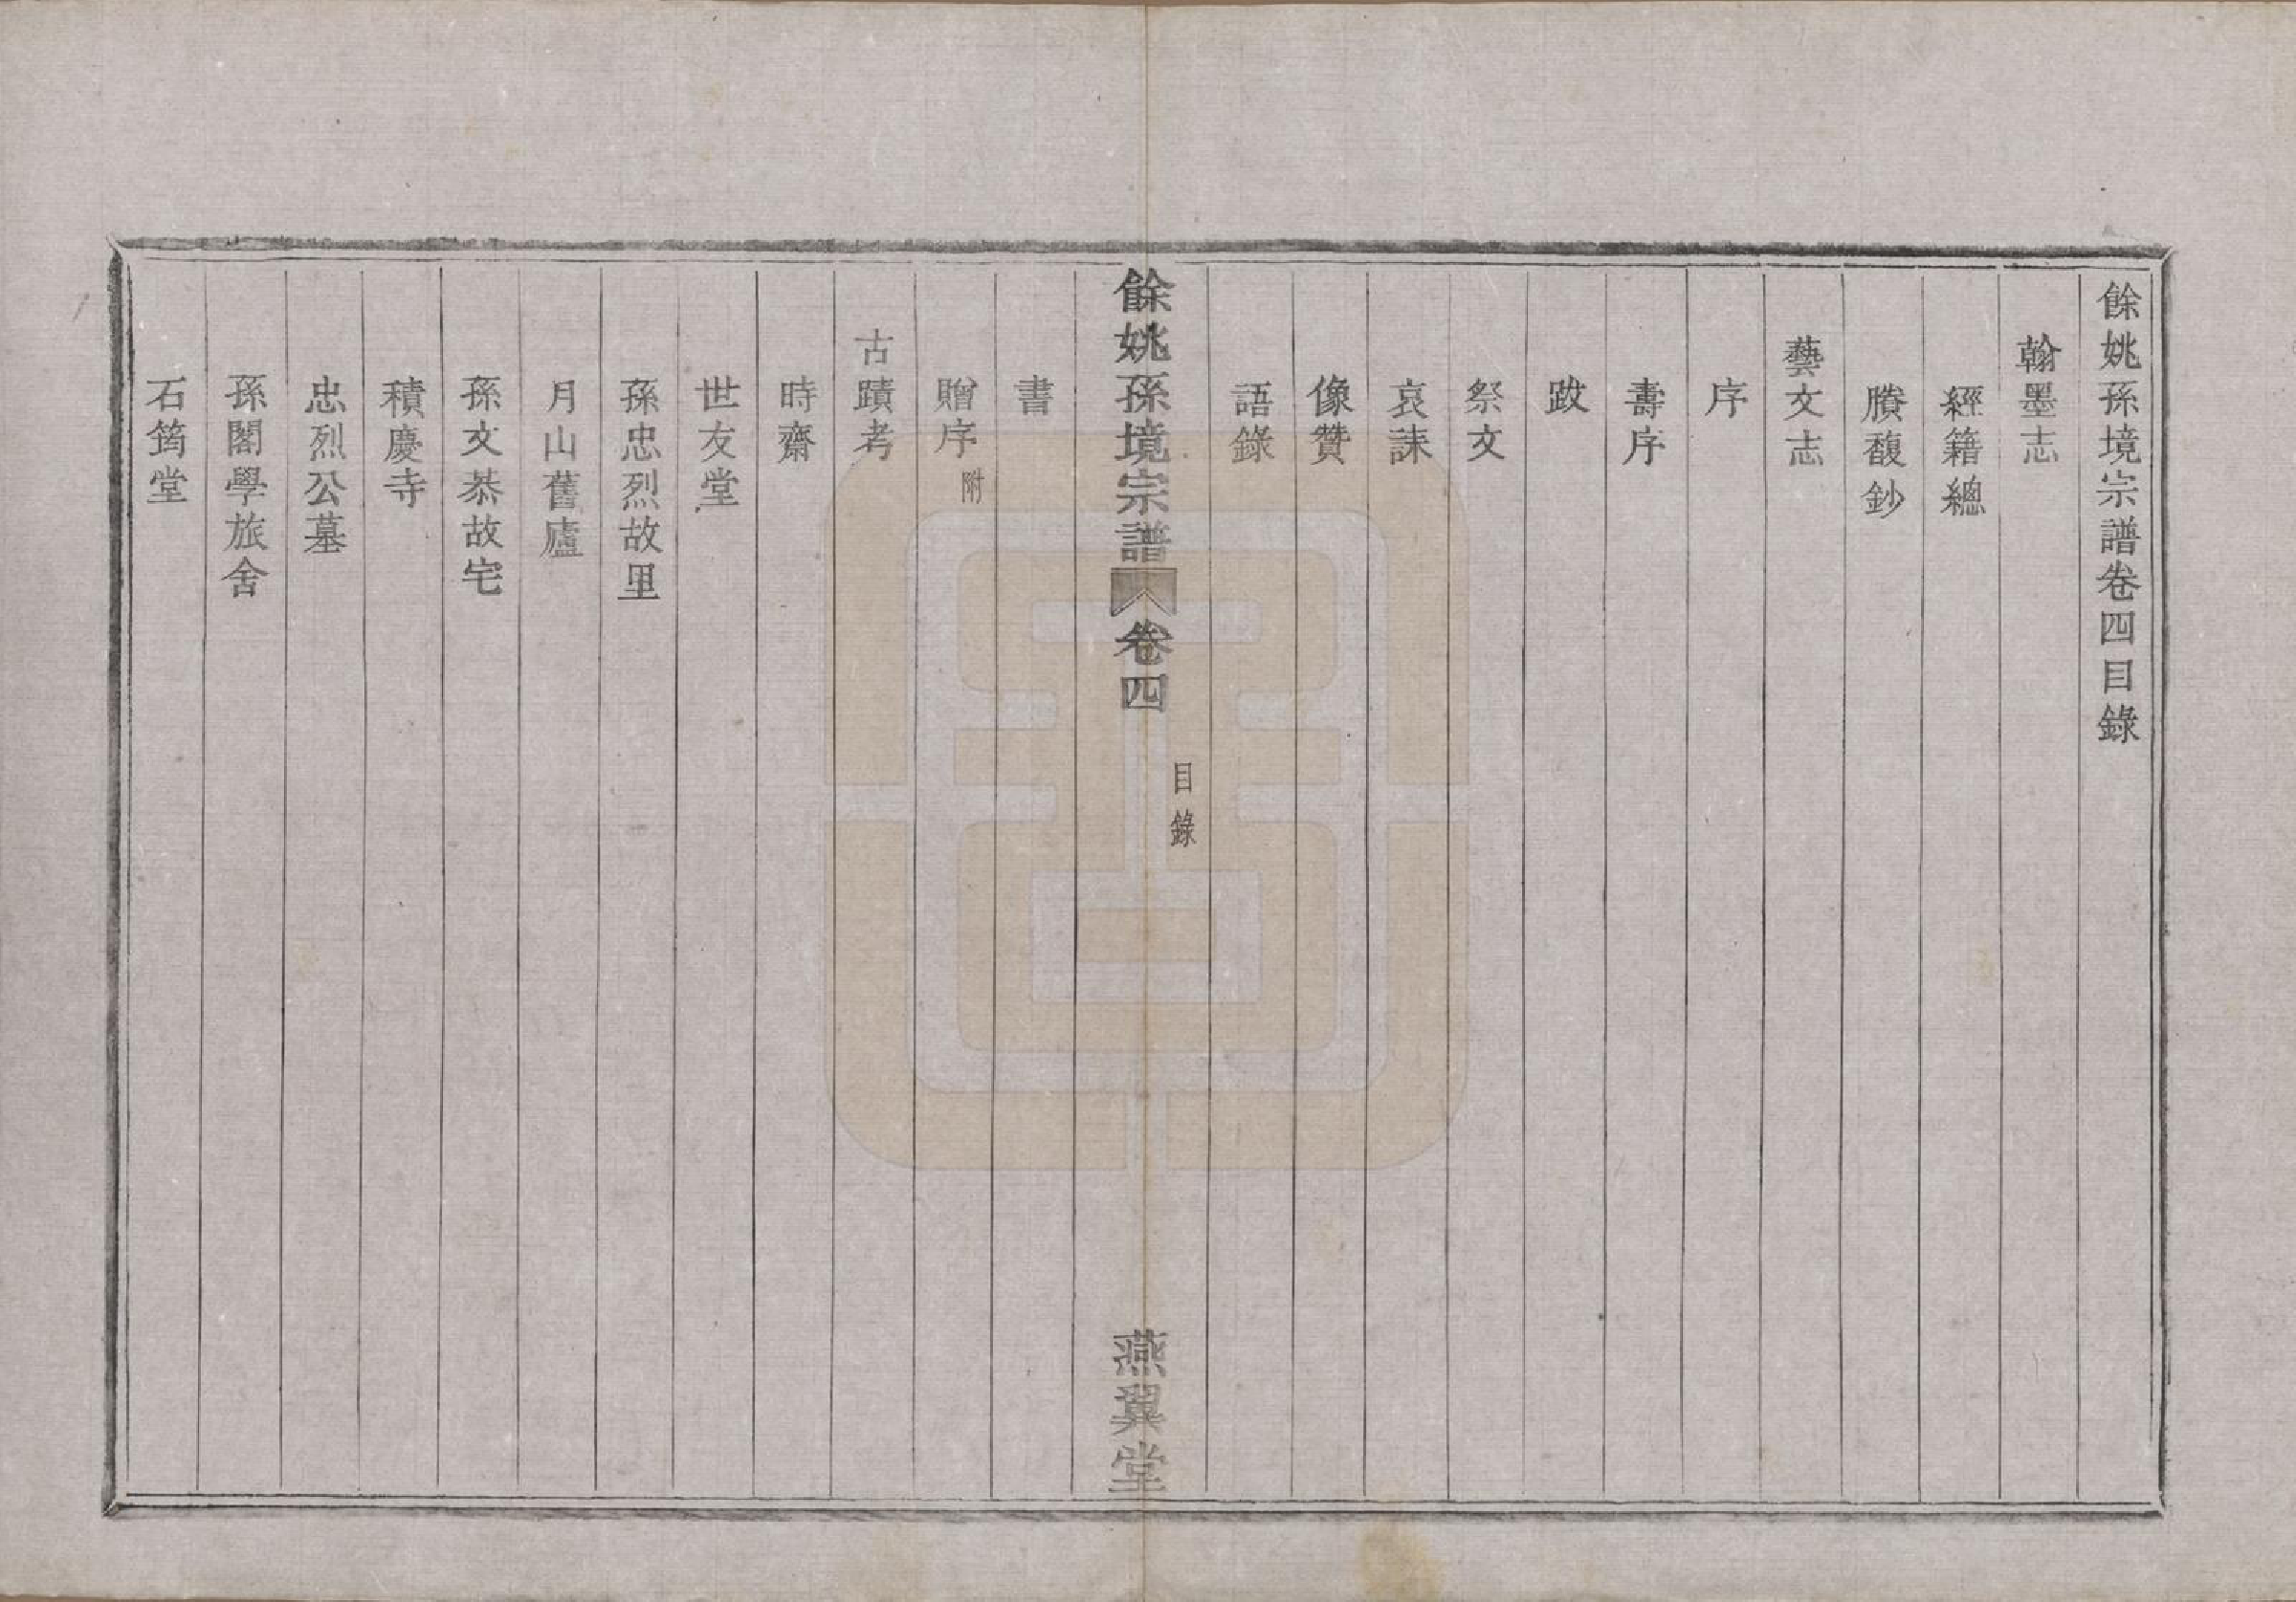 餘姚孫境宗譜卷四目錄
翰墨志
經籍總
賸馥鈔
藝文志
序
壽序
跋
祭文
哀誄
像贊
語錄
餘姚孫境宗譜 卷四
目錄
燕翼堂
書
贈序附
古蹟考
時齋
世友堂
孫忠烈故里
月山舊廬
孫文恭故宅
積慶寺
忠烈公墓
孫閣學旅舍
石筠堂